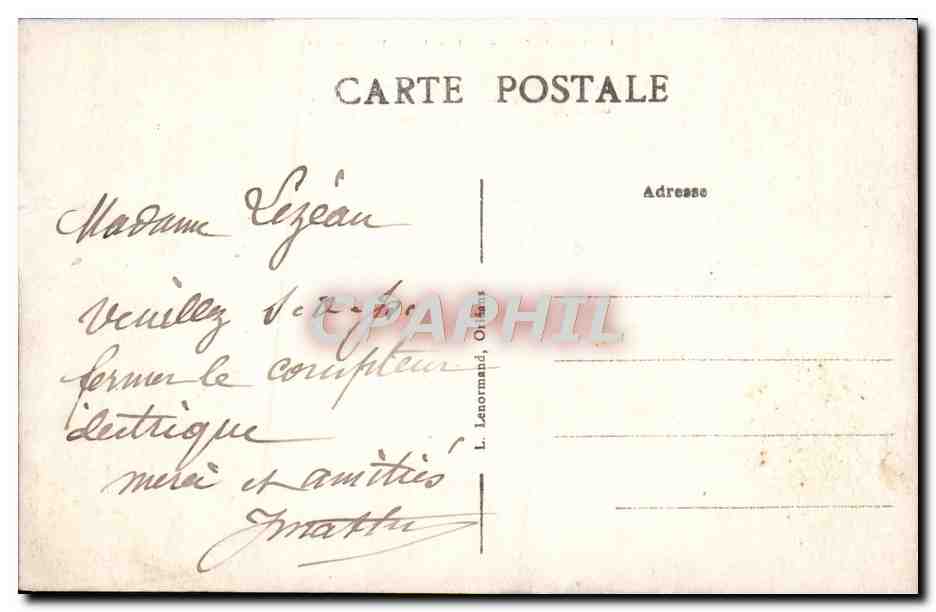 CARTE POSTALE
Madame Lézéau
Veuillez s.v.p.
fermer le compteur
électrique
merci et amitiés
L. Lenormand, Orléans
Adresse
CPAPHIL